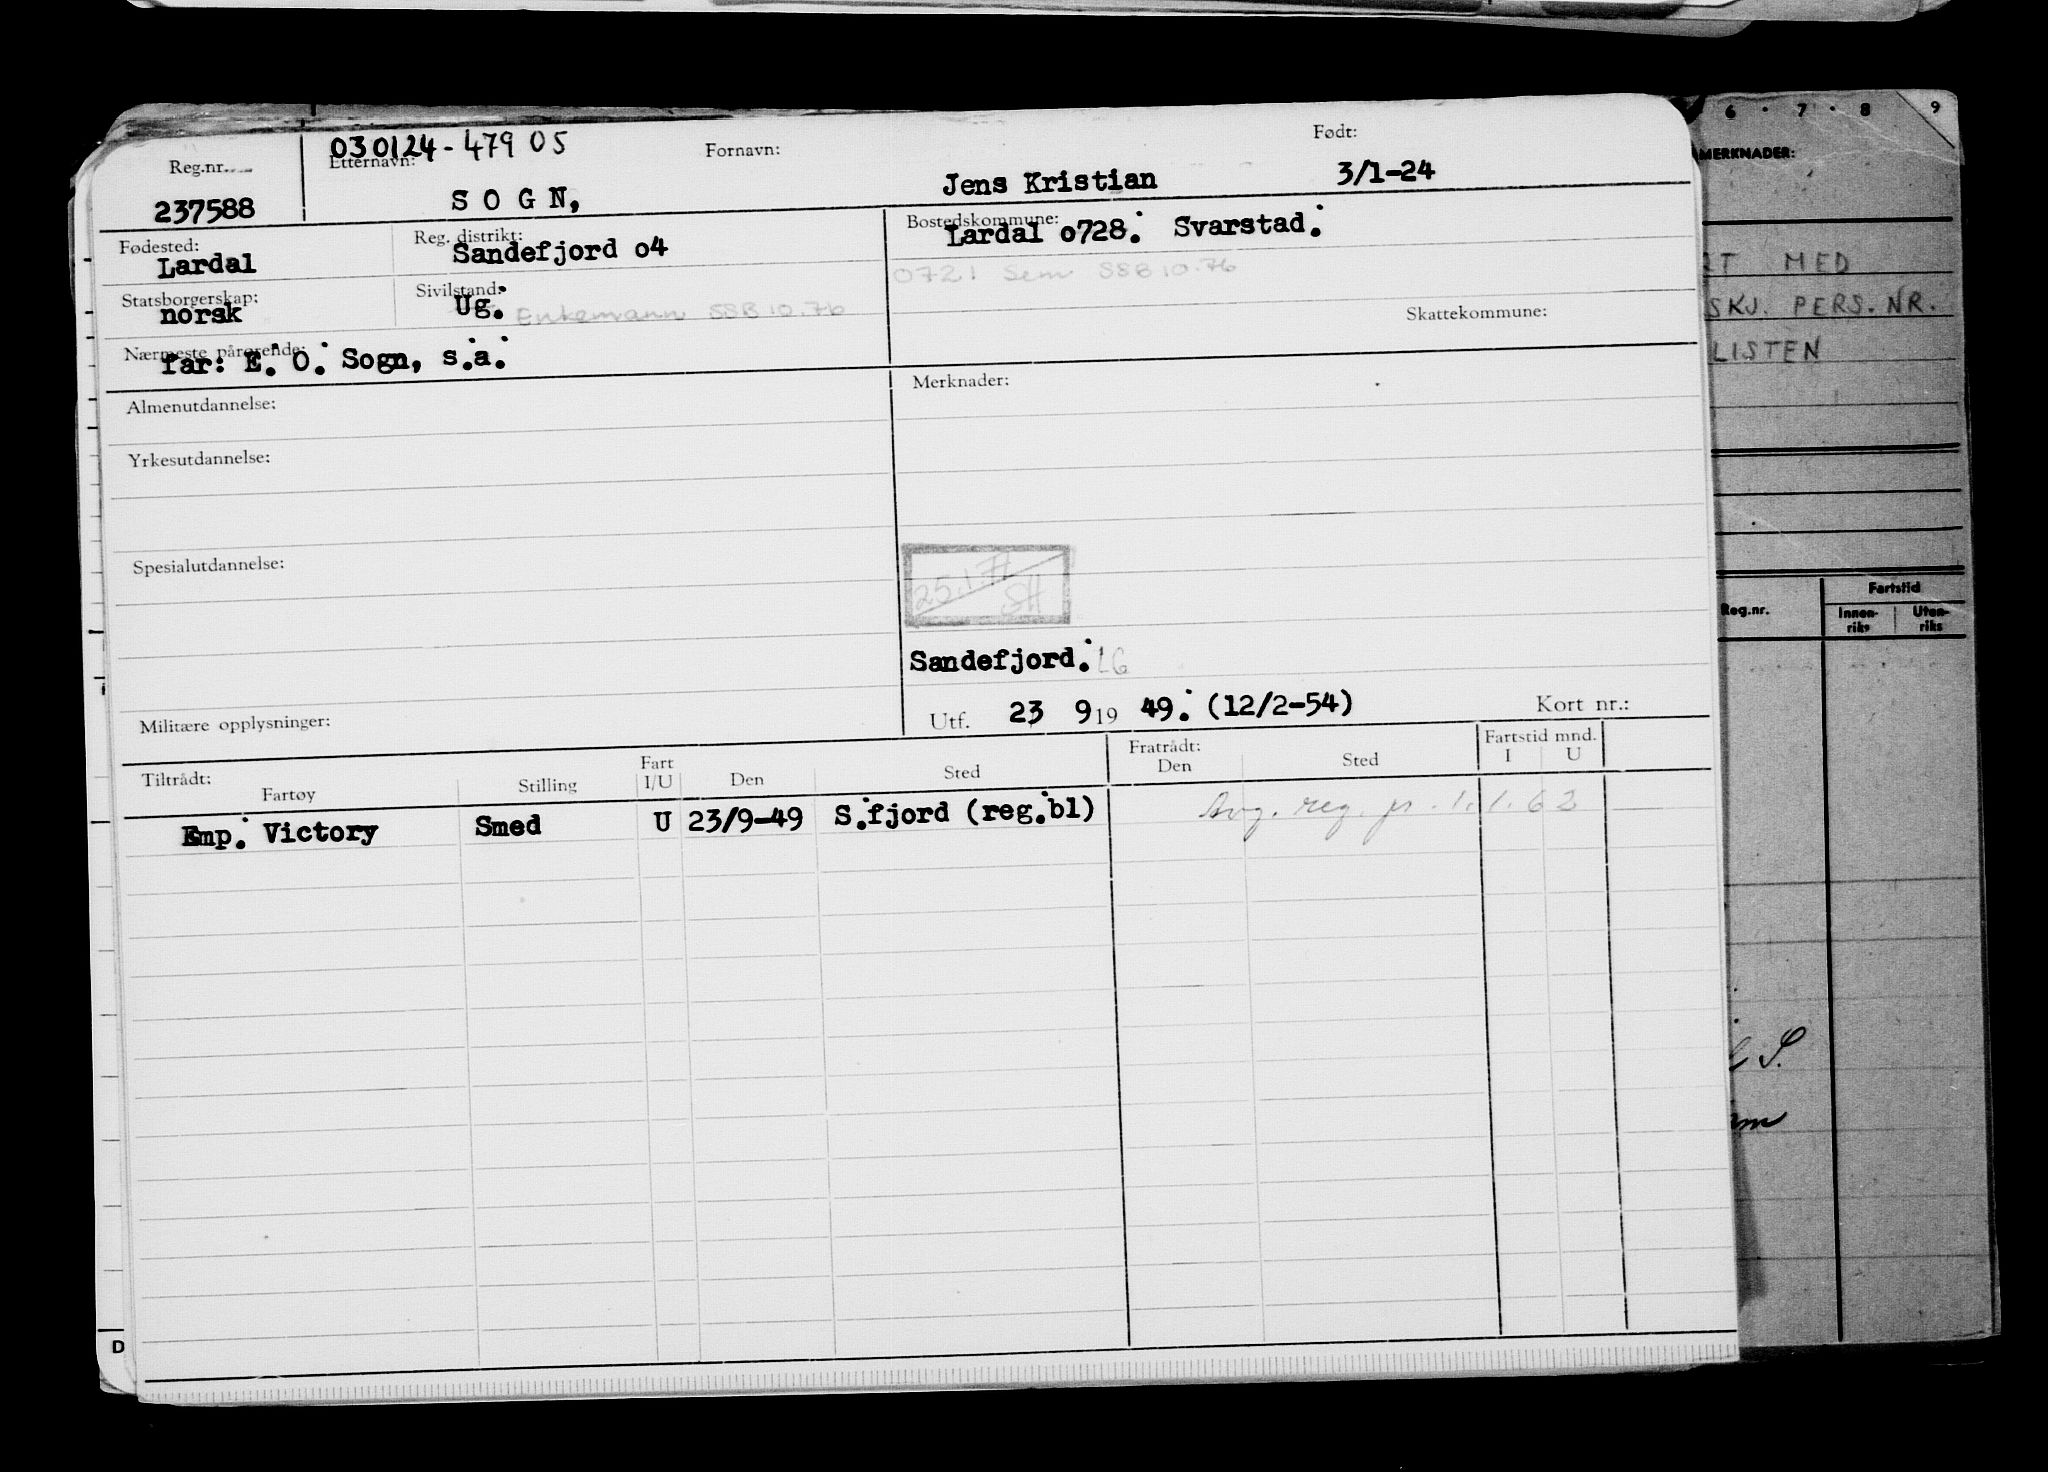 6 · 7 · 8 9
030124-47905
Reg.nr. Etternavn: Fornavn: Født:
237588 SOGN, Jens Kristian 3/1-24
Fødested: Reg. distrikt: Bostedskommune:
Lardal Sandefjord o4 Lardal o728. Svarstad.
0721 Sem SSB 10.76
Statsborgerskap: Sivilstand: Skattekommune:
norsk Ug. Enkemann SSB 10.76
Nærmeste pårørende:
far: E. O. Sogn, s.a.
Almenutdannelse: Merknader:
Yrkesutdannelse:
Spesialutdannelse:
25.1.71
SH
Sandefjord. LG
Militære opplysninger: Utf. 23 9 19 49. (12/2-54) Kort nr.:
Tiltrådt: Fratrådt: Fartstid mnd.
Fartøy Stilling Fart I/U Den Sted Den Sted I U
Emp. Victory Smed U 23/9-49 S.fjord (reg.bl) Avg. reg. pr. 1.1.62
D
MERKNADER:
MED
SKJ. PERS.NR.
LISTEN
Reg.nr. Fartstid
Innen-riks Uten-riks
S.